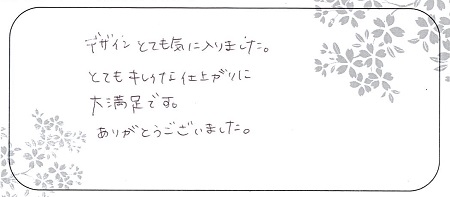 デザインとても気に入りました。
とてもキレイな仕上がりに
大満足です。
ありがとうございました。